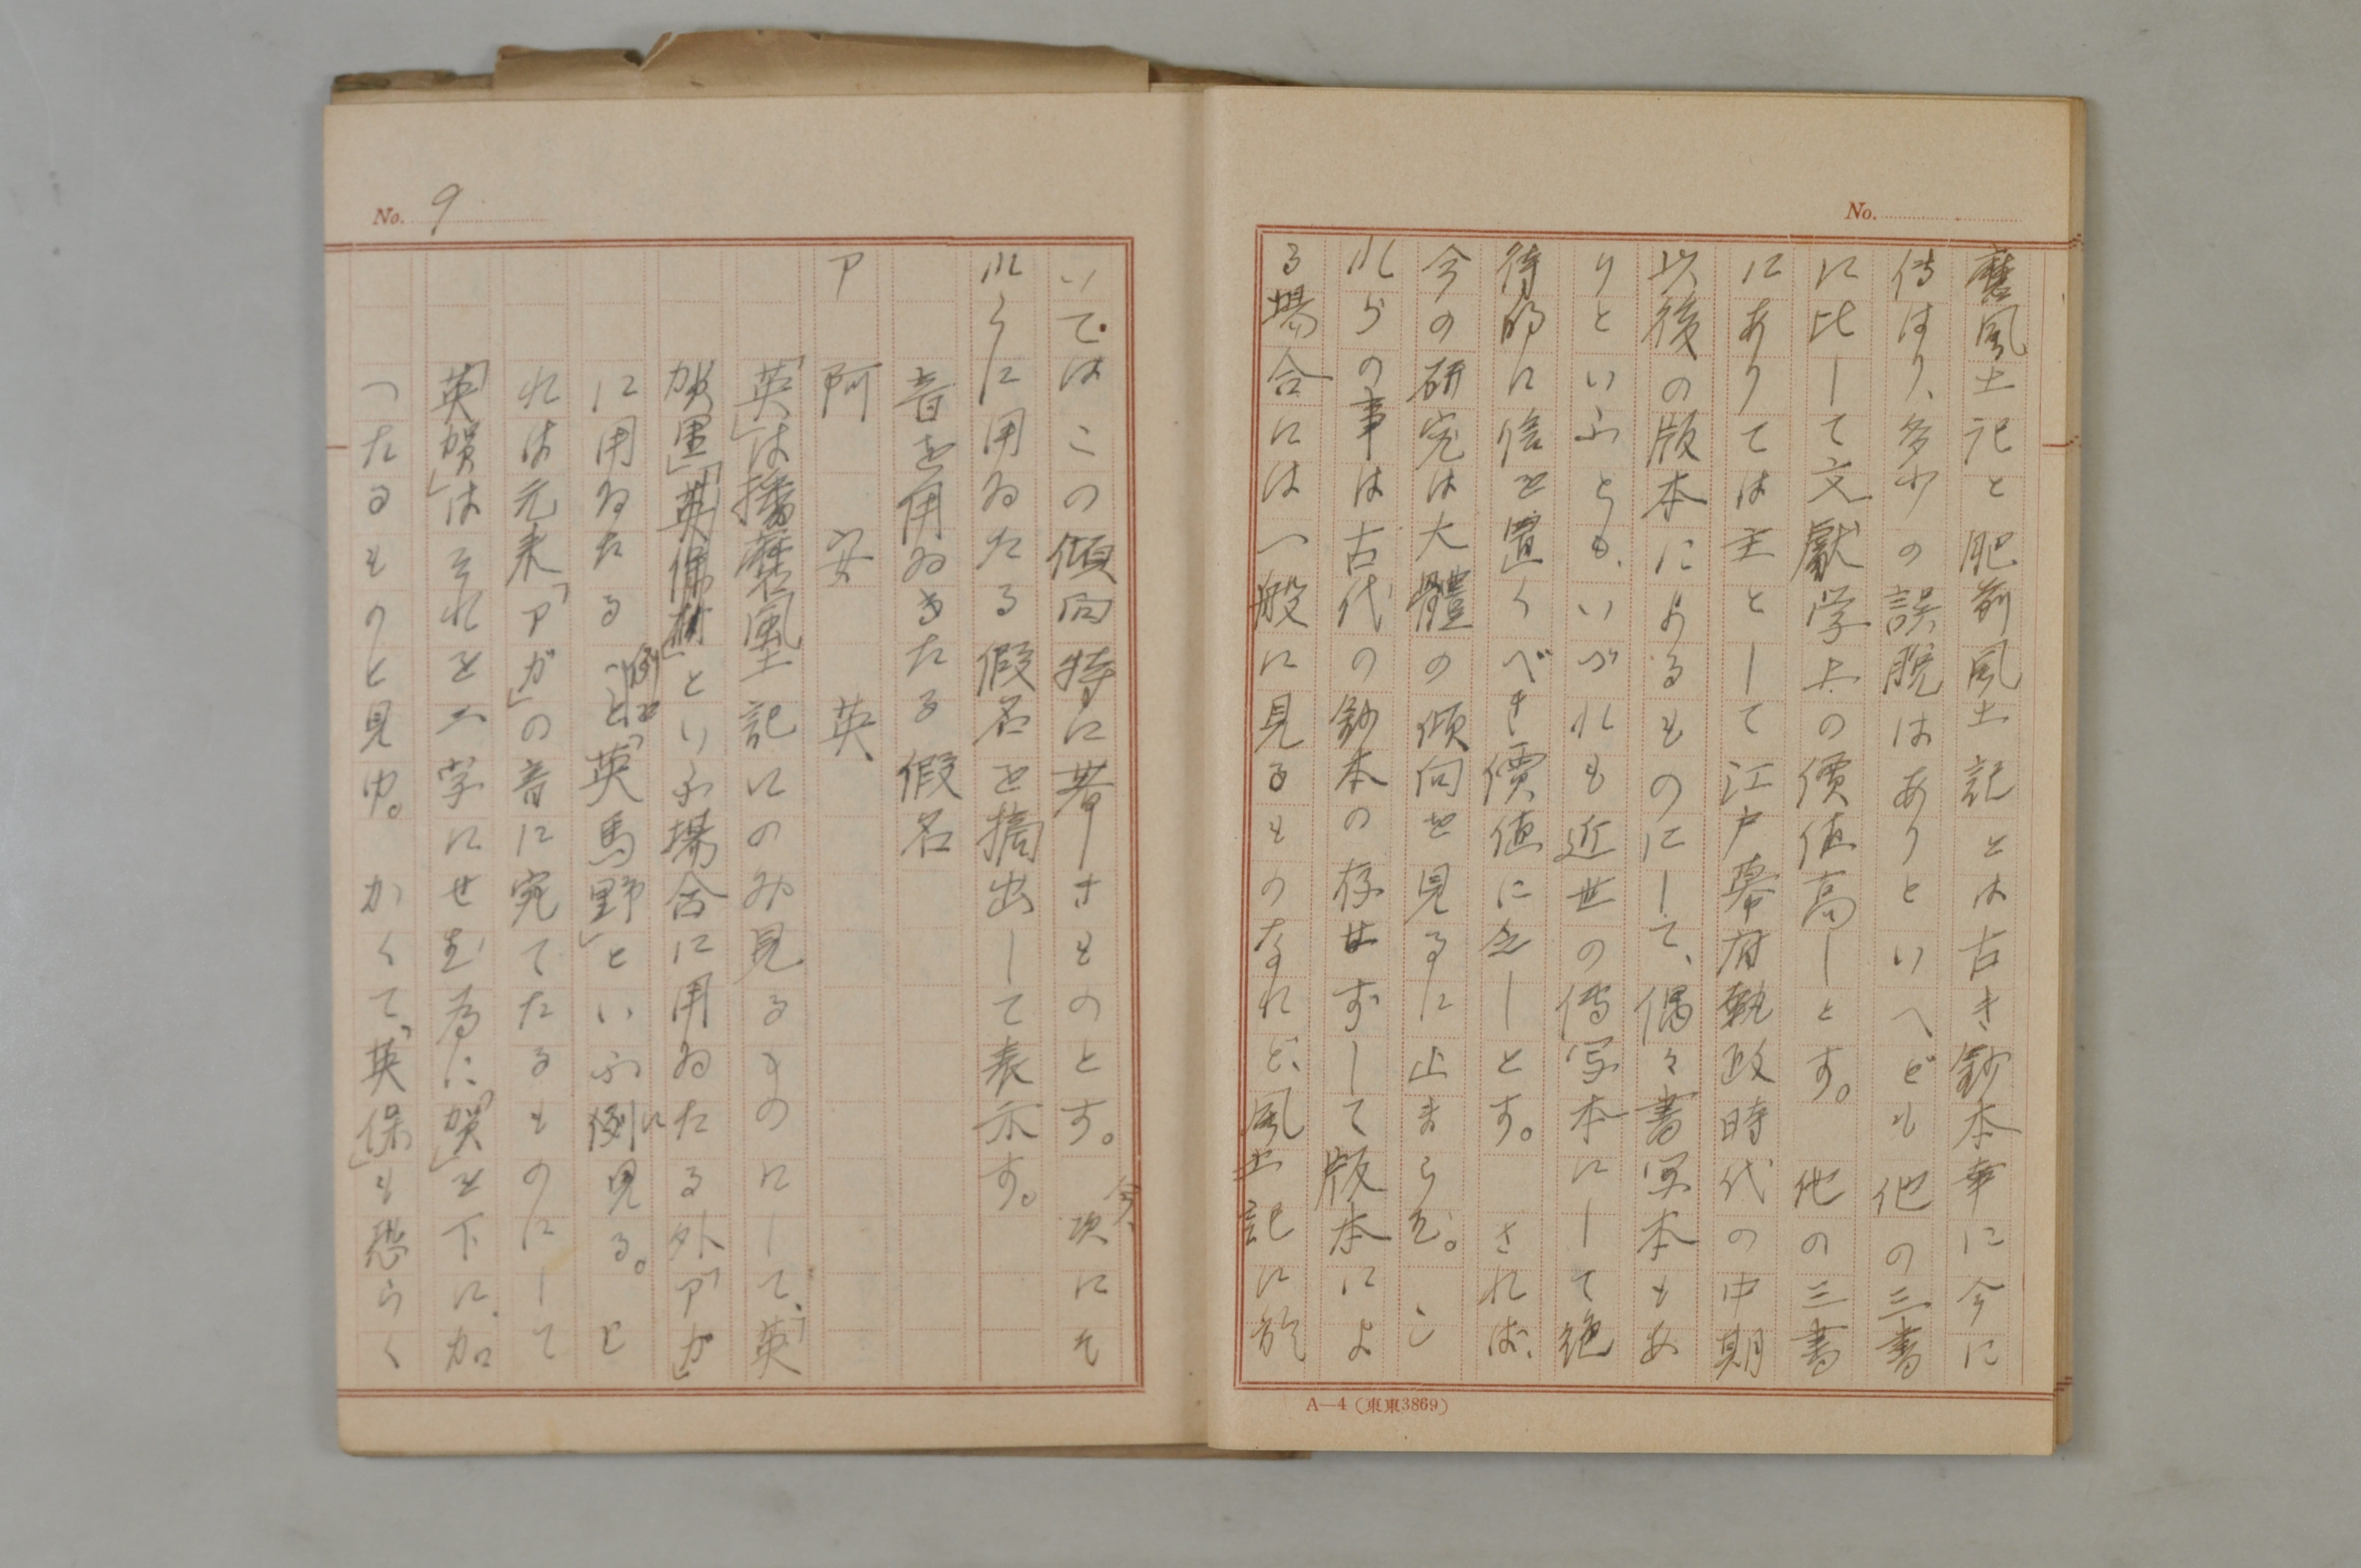 No.
磨風土記と肥前風土記とは古き鈔本幸に今に
傳はり、多少の誤脱はありといへども他の三書
に比して文獻学上の價値高しとす。他の三書
にありては主として江戸幕府執政時代の中期
以後の版本によるものにして、偶々書写本もあ
りといふとも、いづれも近世の傳写本にして絶
待的に信を置くべき價値に乏しとす。されば、
今の研究は大體の傾向を見るに止まらむ。こ
れらの事は古代の鈔本の存せずして版本によ
る場合には一般に見るものなれど、風土記に於
A—4(東東3869)
No. 9
いてはこの傾向特に著しきものとす。今、次にそ
れらに用ゐたる假名を摘出して表示す。
音を用ゐきたる假名
ア 阿 安 英
「英」は播磨風土記にのみ見るものにして、「英
賀里」「英保村」といふ場合に用ゐたる外「アガ」
に用ゐたる例と「英馬野」といふ例に見る。こ
れは元来「アガ」の音に宛てたるものにして
「英賀」はそれを二字にせむ為に「賀」を下に加
へたるものと見ゆ。かくて、「英保」も恐らく